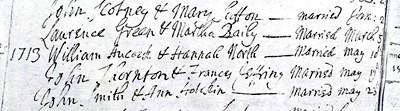 John Scotney & Mary Cotton — married Jan: 2
Laurence Green & Martha Daily — Married March 5
1713 William & Hannah North — Married may 10
John Thornton & Frances Married may 1
John Smith & Ann — Married may 2